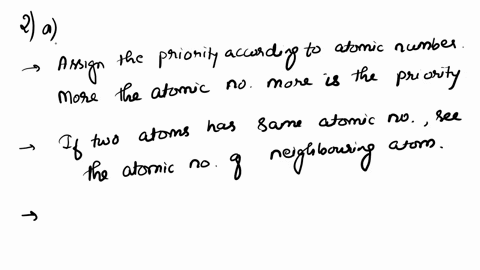 2) a)
→ Assign the priority according to atomic number.
More the atomic no. more is the priority
→ If two atoms has same atomic no., see
the atomic no. of neighbouring atom.
→